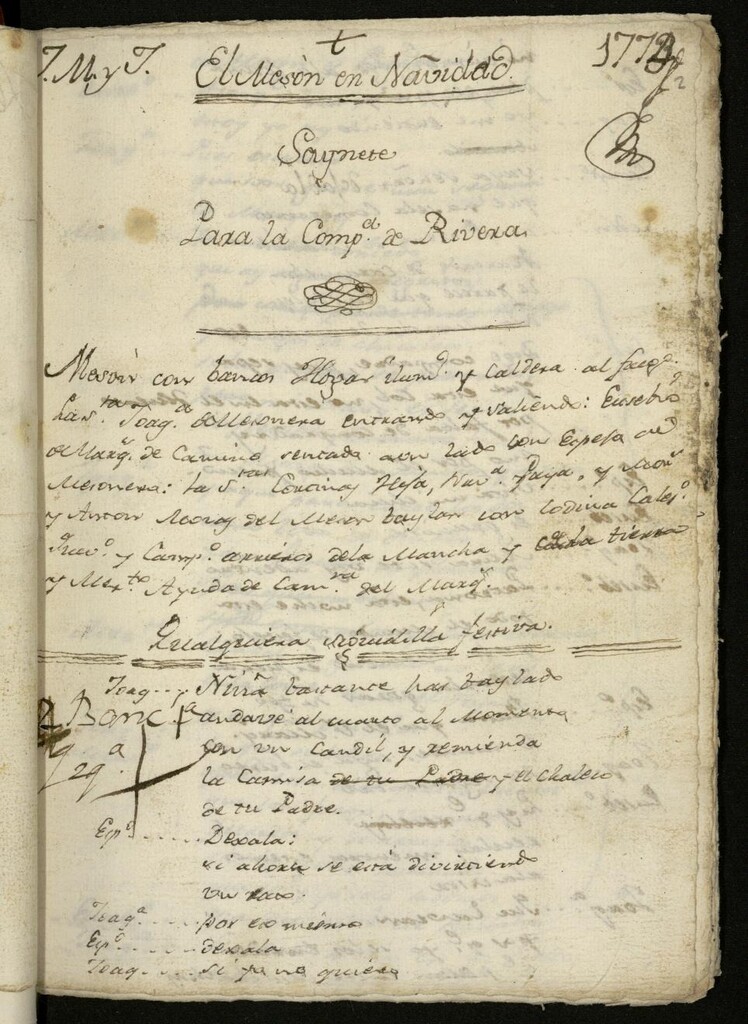 J. M. y J. El Mesón en Navidad. 177
Saynete
Para la Comp.ª de Rivera.
Meson con bancos Hogar y Caldera al fuego.
La S.ra Joaq.ª de Mesonera entrando y saliendo: Eusebio
de Marq.s de Camino sentado a un lado con Espejo de
Mesonero: las S.ras y
y Anton Mozos del Meson baylan con
y Camp.o arrieros de la Mancha y tierra
y Ayuda de Cam.ra del Marq.s
Qualquiera festiva.
Joaq... Niña bastante has baylado
anda vé al cuarto al Momento
con un Candil, y remienda
la Camisa de tu Padre y el chaleco
de tu Padre.
Esp.o ...... Dexala:
si ahora se está divirtiendo
un rato.
Joaq.ª .... por eso mismo
Esp.o ..... dexala
Joaq ..... si yo no quiero